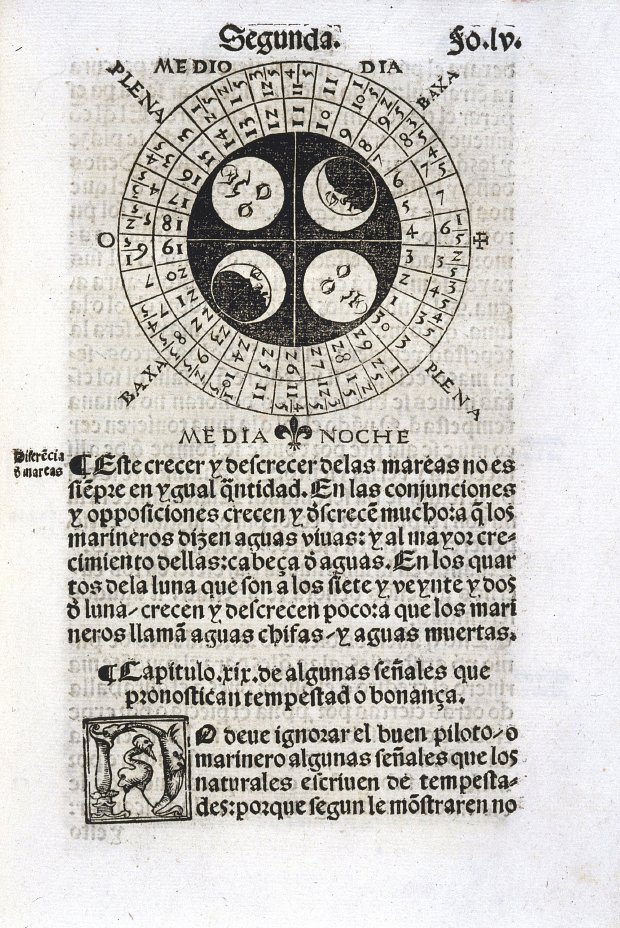 Segunda. Fo.lv.
MEDIO DIA
PLENA
BAXA
BAXA
PLENA
MEDIA NOCHE
Diferẽcia
ð mareas
¶ Este crecer y descrecer delas mareas no es
siẽpre en ygual q̃ntidad. En las conjunciones
y opposiciones crecen y ðscrecẽ mucho: a q̃ los
marineros dizen aguas viuas: y al mayor cre-
cimiento dellas: cabeça ð aguas. En los quar
tos dela luna que son a los siete y veynte y dos
ð luna/ crecen y descrecen poco: a que los mari
neros llamã aguas chifas/ y aguas muertas.
¶ Capitulo .xix. de algunas señales que
pronostican tempestad o bonança.
NO deue ignorar el buen piloto/ o
marinero algunas señales que los
naturales escriuen de tempesta-
des: porque segun le mõstraren no